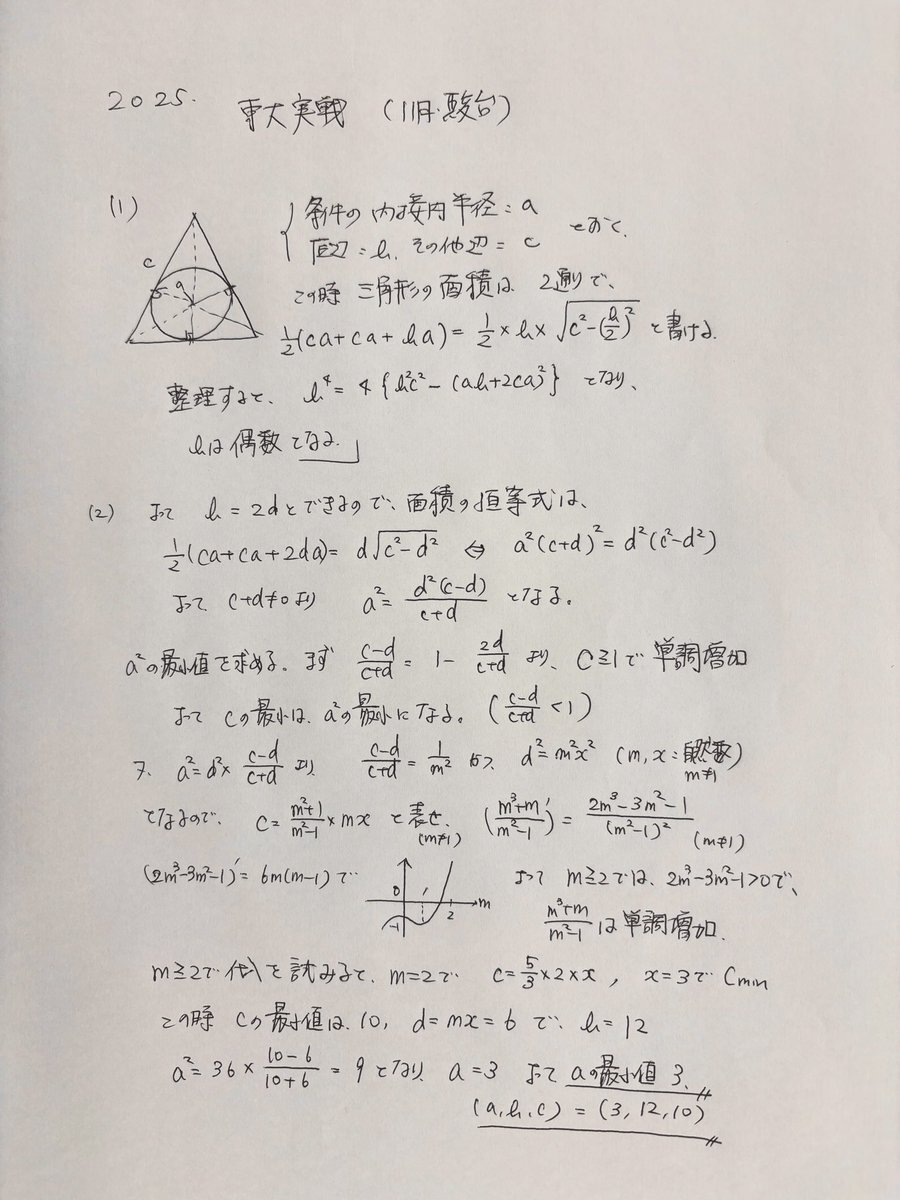 2025. 東大実戦 (11月・駿台)
(1)
c
a
条件の内接円半径=a
底辺=h, その他辺=c とおく
この時 三角形の面積は 2通りで、
1/2(ca+ca+ha) = 1/2 × h × √(c²-(h/2)²) と書ける.
整理すると、 h⁴ = 4{h²c²-(ah+2ca)²} となり、
hは偶数となる.
(2) よって h=2dとできるので、面積の恒等式は、
1/2(ca+ca+2da) = d√(c²-d²) ⇔ a²(c+d)² = d²(c²-d²)
よって c+d≠0より a² = d²(c-d)/(c+d) となる。
a²の最小値を求める. まず (c-d)/(c+d) = 1 - 2d/(c+d) より、 C≧1で単調増加
よって cの最小は、a²の最小になる。((c-d)/(c+d) < 1)
又、a²=d²×(c-d)/(c+d) より (c-d)/(c+d) = 1/m² かつ d²=m²x² (m,x:自然数 m≠1)
となるので、 c = (m²+1)/(m²-1) × mx と表せ (m≠1) ((m³+m)/(m²-1))' = (2m³-3m²-1)/(m²-1)² (m≠1)
(2m³-3m²-1)' = 6m(m-1) で
0 1 2 m -1
よって m≧2では、2m³-3m²-1>0で、
(m³+m)/(m²-1) は単調増加.
m≧2で代入を試みると、m=2で c=5/3×2×x , x=3で Cmin
この時 cの最小値は、10, d=mx=6 で、h=12
a²=36×(10-6)/(10+6) = 9 となり a=3 よって aの最小値 3,
(a,h,c) = (3,12,10)